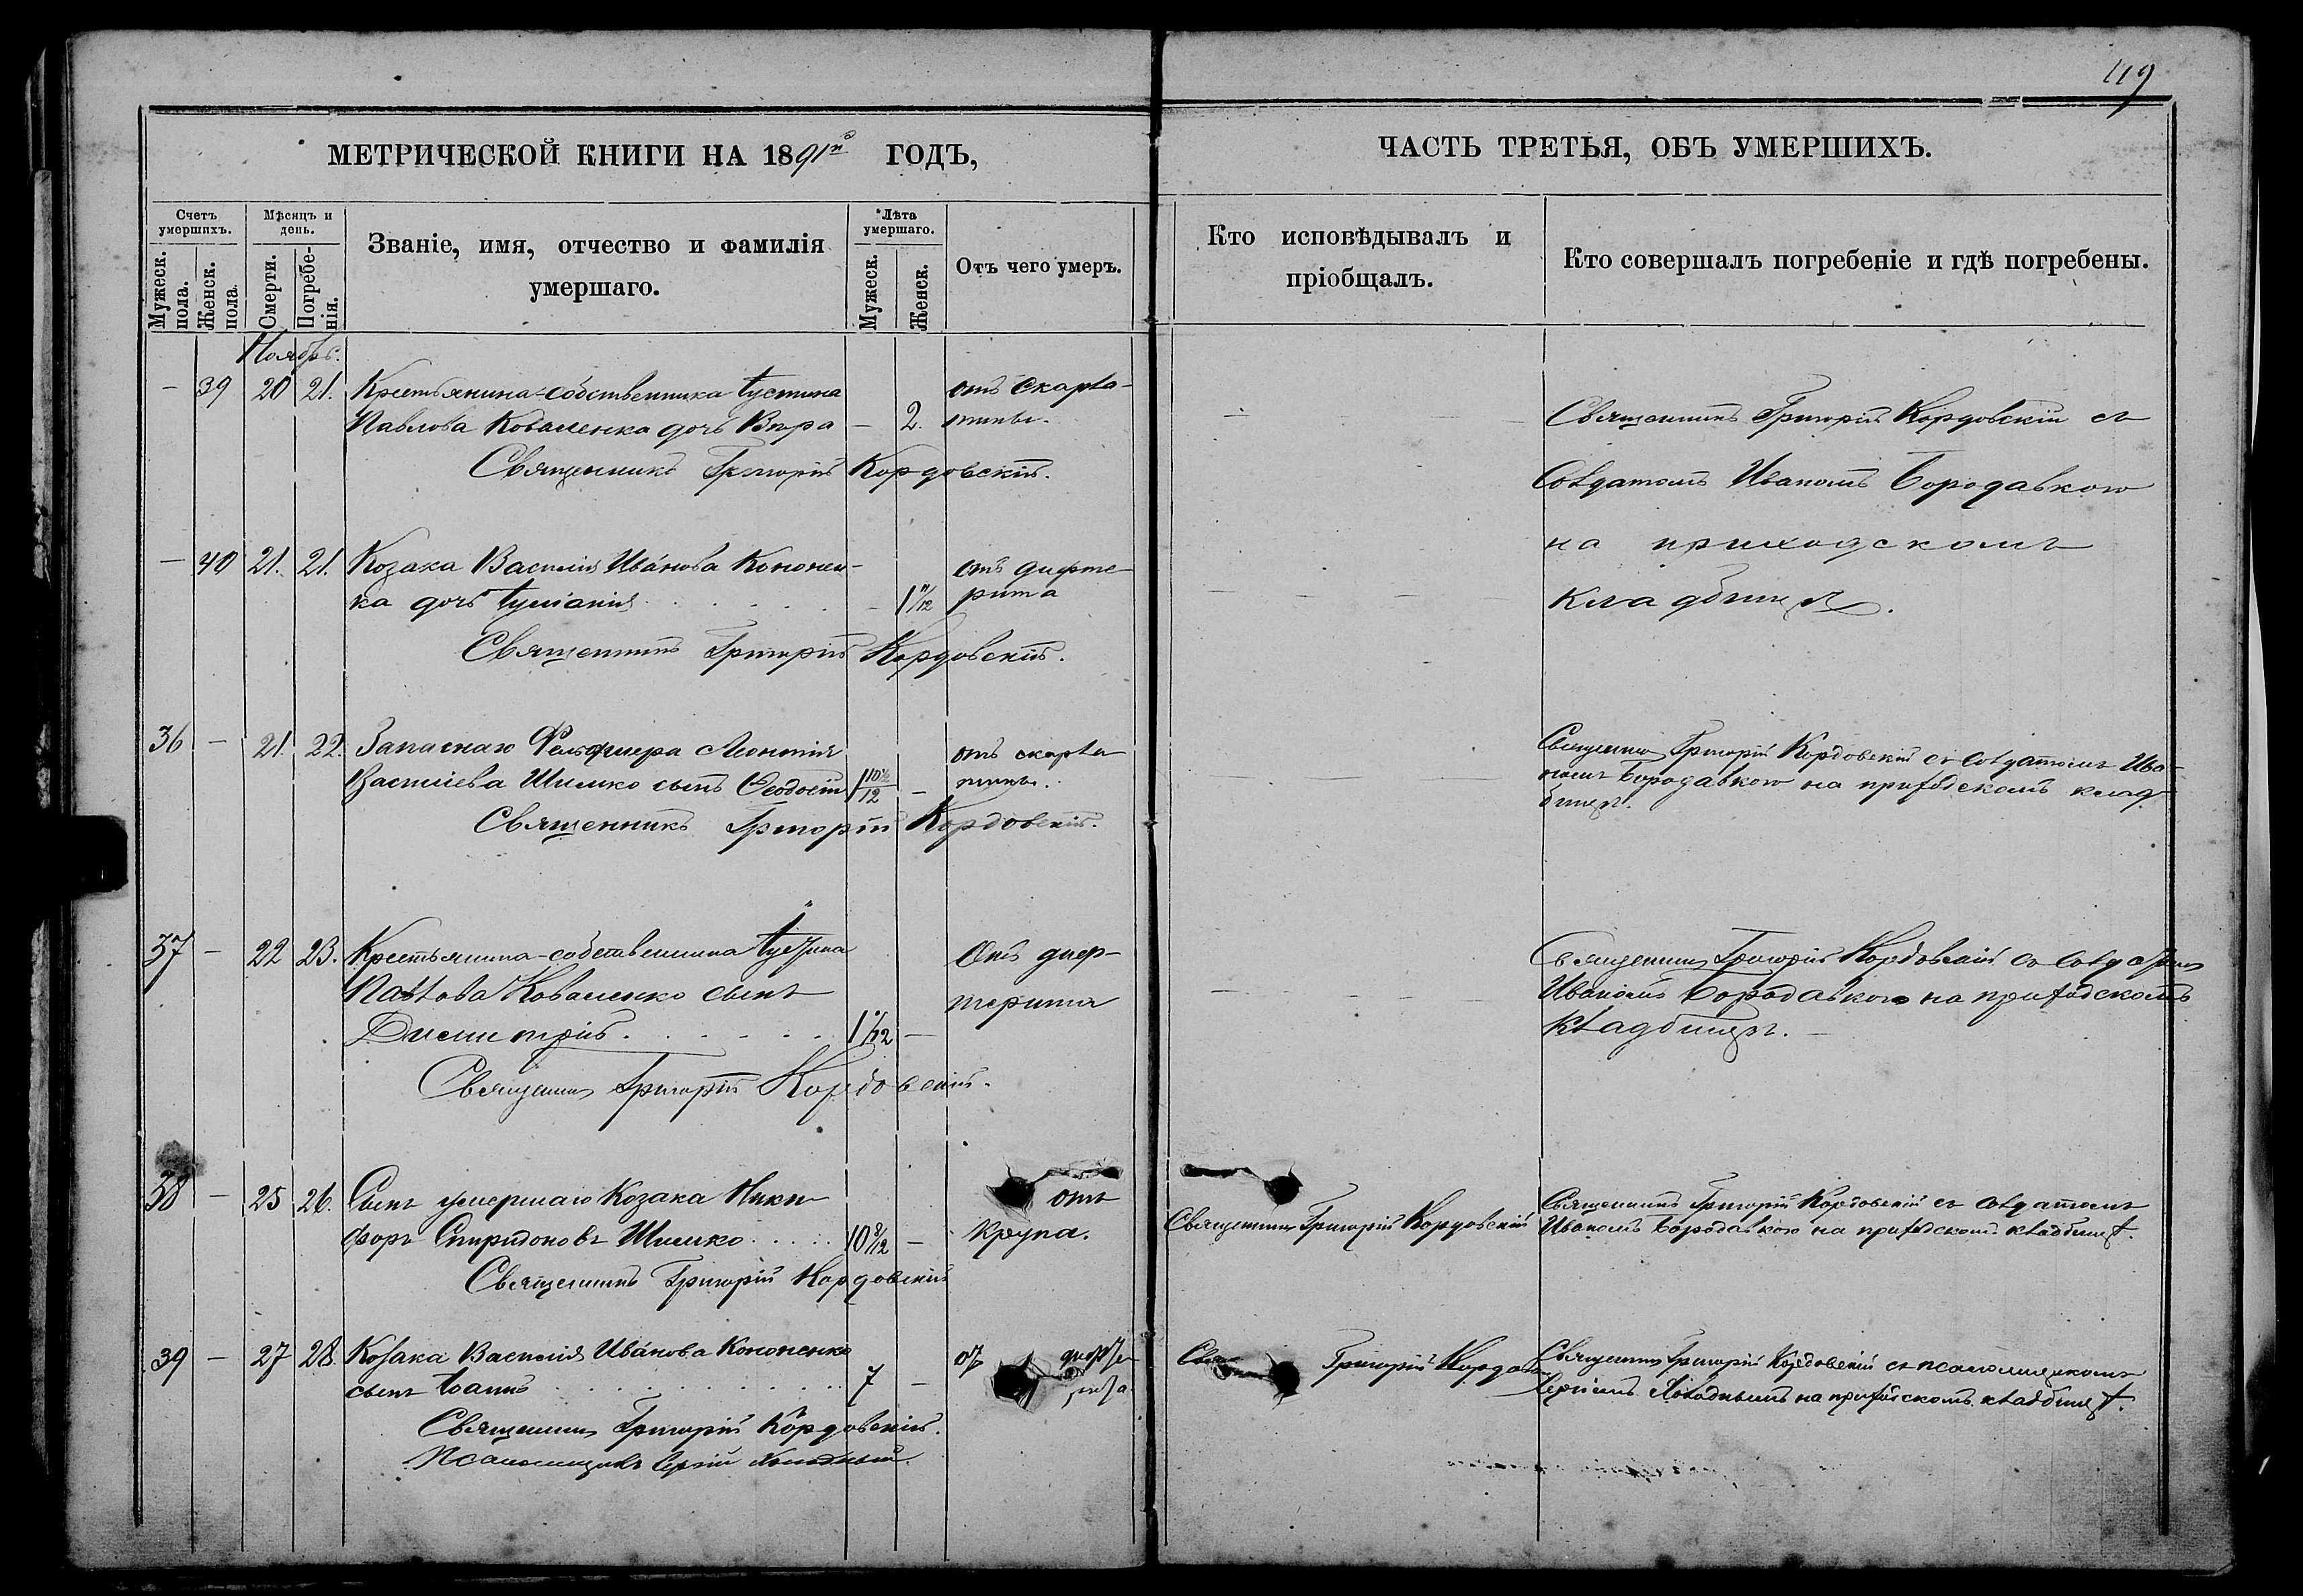 119
МЕТРИЧЕСКОЙ КНИГИ НА 1891й ГОДЪ,
ЧАСТЬ ТРЕТЬЯ, ОБЪ УМЕРШИХЪ.
Счетъ умершихъ.
Мужеск. пола.
Женск. пола.
Мѣсяцъ и день.
Смерти.
Погребенія.
Званіе, имя, отчество и фамилія
умершаго.
Лѣта умершаго.
Мужеск.
Женск.
Отъ чего умеръ.
Кто исповѣдывалъ и
пріобщалъ.
Кто совершалъ погребеніе и гдѣ погребены.
Ноябрь.
— 39 20 21. Крестьянина-собственника Іустина отъ скарла-
Павлова Коваленка дочь Вѣра — 2. тины.
Священникъ Григорій Кордовскій.
Священникъ Григорій Кордовскій съ
Солдатомъ Иваномъ Бородавкою
на приходскомъ
кладбищѣ.
— 40 21. 21. Козака Василія Иванова Кононен- отъ дифте
ка дочь Іуліанія — 1 11/12 рита
Священникъ Григорій Кордовскій.
36 — 21. 22. Запаснаго Фельдшера Леонтія отъ скарла
Васильева Шимко сынъ Ѳеодосій 1 10½/12 — тины.
Священникъ Григорій Кордовскій.
Священникъ Григорій Кордовскій съ Солдатомъ Ива-
номъ Бородавкою на приходскомъ клад-
бищѣ.
37 — 22 23. Крестьянина-собственника Іустина Отъ диф-
Павлова Коваленко сынъ терита
Димитрій 1/12 —
Священникъ Григорій Кордовскій.
Священникъ Григорій Кордовскій съ Солдатомъ
Иваномъ Бородавкою на приходскомъ
кладбищѣ. —
38 — 25 26. Сынъ умершаго Козака Ники- отъ
форъ Спиридоновъ Шимко 10 8/12 — крупа.
Священникъ Григорій Кордовскій
Священникъ Григорій Кордовскій
Священникъ Григорій Кордовскій съ Солдатомъ
Иваномъ Бородавкою на приходскомъ кладбищѣ.
39 — 27 28. Козака Василія Иванова Кононенко от дифте
сынъ Іоаннъ 7 — рита.
Священникъ Григорій Кордовскій.
Псаломщикъ Сергій Холодный
Свя Григорій Кордов
Священникъ Григорій Кордовскій съ псаломщикомъ
Сергіемъ Холоднымъ на приходскомъ кладбищѣ.